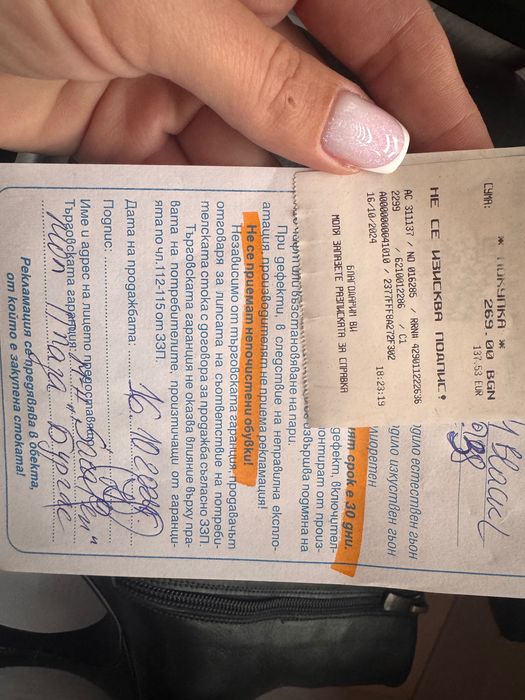 СУМА:
* ПОКУПКА *
269.00 BGN
137.53 EUR
НЕ СЕ ИЗИСКВА ПОДПИС!
AC 311137 / NO 016285 / RRN# 429011222636
2299 / 6210012286 / C1
A0000000041010 / 2377FFF8A272F302
16/10/2024 18:23:19
БЛАГОДАРИМ ВИ
МОЛЯ ЗАПАЗЕТЕ РАЗПИСКАТА ЗА СПРАВКА
дило естествен гьон
дило изкуствен гьон
срок е 30 дни.
дефект, включител-
монтират от произ-
извършва подмяна на
възстановяване на пари.
При дефекти, в следствие на неправилна експло-
атация, производителят не приема рекламация!
Не се приемат непочистени обувки!
Независимо от търговската гаранция, продавачът
отговаря за липсата на съответствие на потреби-
телската стока с договора за продажба съгласно ЗЗП.
Търговската гаранция не оказва влияние върху пра-
вата на потребителите, произтичащи от гаранци-
ята по чл.112-115 от ЗЗП.
Дата на продажбата: 16.10.2024
Подпис:
Име и адрес на лицето предоставящо
Търговската гаранция:
Бургас
Рекламация се предявява в обекта,
от който е закупена стоката!